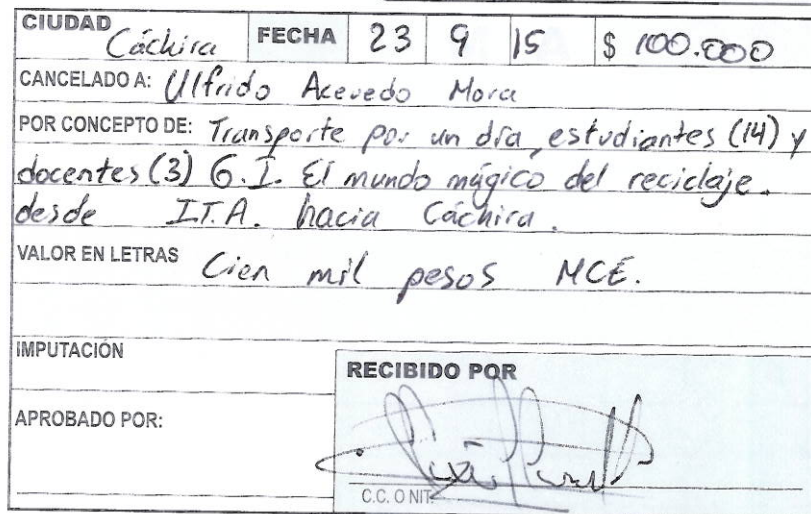 CIUDAD Cáchira FECHA 23 9 15 $ 100.000
CANCELADO A: Ulfrido Acevedo Mora
POR CONCEPTO DE: Transporte por un día, estudiantes (14) y
docentes (3) G.I. El mundo mágico del reciclaje.
desde I.T.A. hacia Cáchira.
VALOR EN LETRAS Cien mil pesos MCE.
IMPUTACIÓN
RECIBIDO POR
APROBADO POR:
C.C. O NIT.